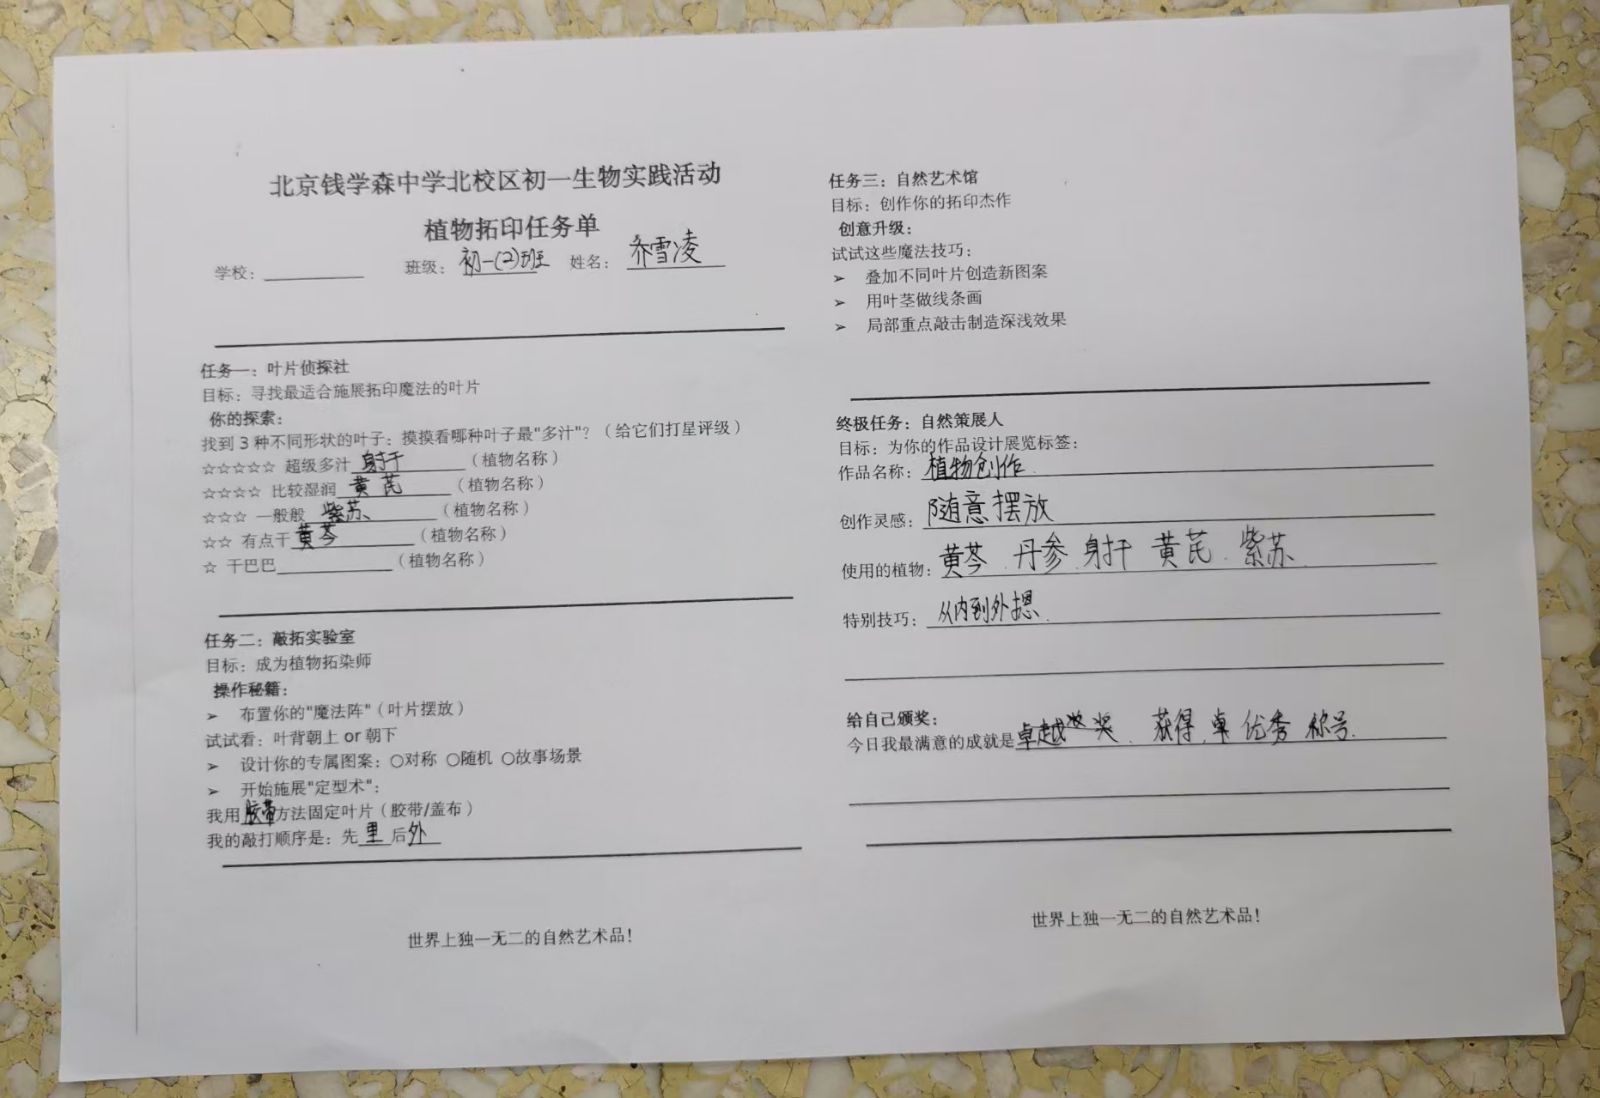 北京钱学森中学北校区初一生物实践活动
植物拓印任务单
学校： 班级：初一(2)班 姓名：乔雪凌
任务一：叶片侦探社
目标：寻找最适合施展拓印魔法的叶片
你的探索：
找到3种不同形状的叶子：摸摸看哪种叶子最"多汁"？（给它们打星评级）
☆☆☆☆☆ 超级多汁 射干（植物名称）
☆☆☆☆ 比较湿润 黄芪（植物名称）
☆☆☆ 一般般 紫苏（植物名称）
☆☆ 有点干 黄芩（植物名称）
☆ 干巴巴（植物名称）
任务二：敲拓实验室
目标：成为植物拓染师
操作秘籍：
➢ 布置你的"魔法阵"（叶片摆放）
试试看：叶背朝上 or 朝下
➢ 设计你的专属图案：○对称 ○随机 ○故事场景
➢ 开始施展"定型术"：
我用胶带方法固定叶片（胶带/盖布）
我的敲打顺序是：先里后外
世界上独一无二的自然艺术品！
任务三：自然艺术馆
目标：创作你的拓印杰作
创意升级：
试试这些魔法技巧：
➢ 叠加不同叶片创造新图案
➢ 用叶茎做线条画
➢ 局部重点敲击制造深浅效果
终极任务：自然策展人
目标：为你的作品设计展览标签：
作品名称：植物创作.
创作灵感：随意摆放
使用的植物：黄芩.丹参.射干 黄芪.紫苏.
特别技巧：从内到外
给自己颁奖：
今日我最满意的成就是卓越奖.获得 优秀 称号.
世界上独一无二的自然艺术品！